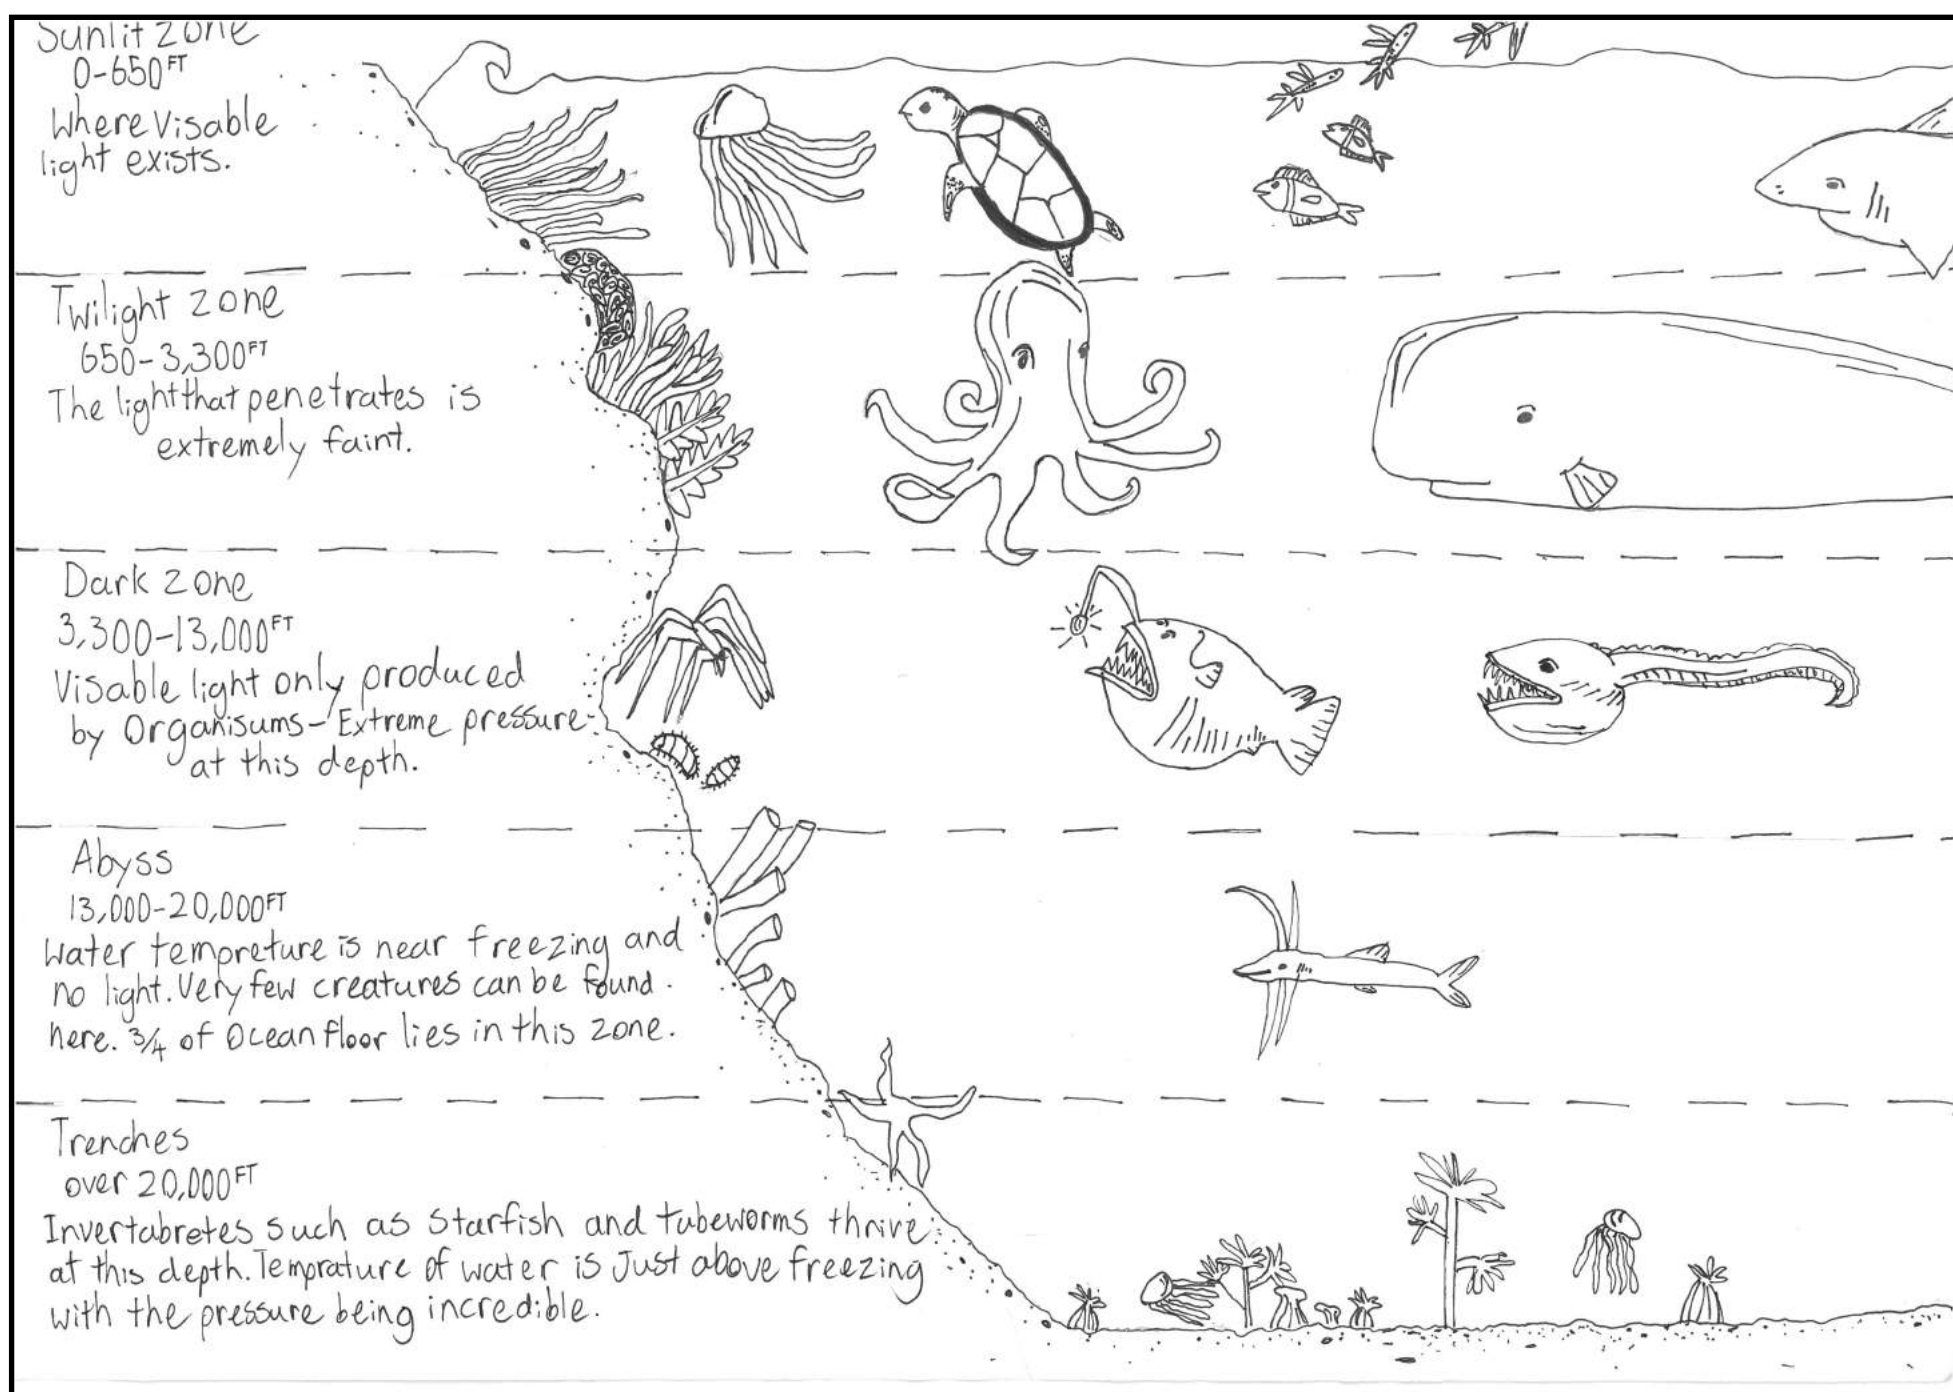 Sunlit zone
0-650FT
Where Visable
light exists.
Twilight zone
650-3,300FT
The light that penetrates is
extremely faint.
Dark zone
3,300-13,000FT
Visable light only produced
by Organisums-Extreme pressure-
at this depth.
Abyss
13,000-20,000FT
Water tempreture is near freezing and
no light. Very few creatures can be found.
here. 3/4 of Ocean floor lies in this zone.
Trenches
over 20,000FT
Invertabretes such as starfish and tubeworms thrive
at this depth. Temprature of water is Just above freezing
with the pressure being incredible.